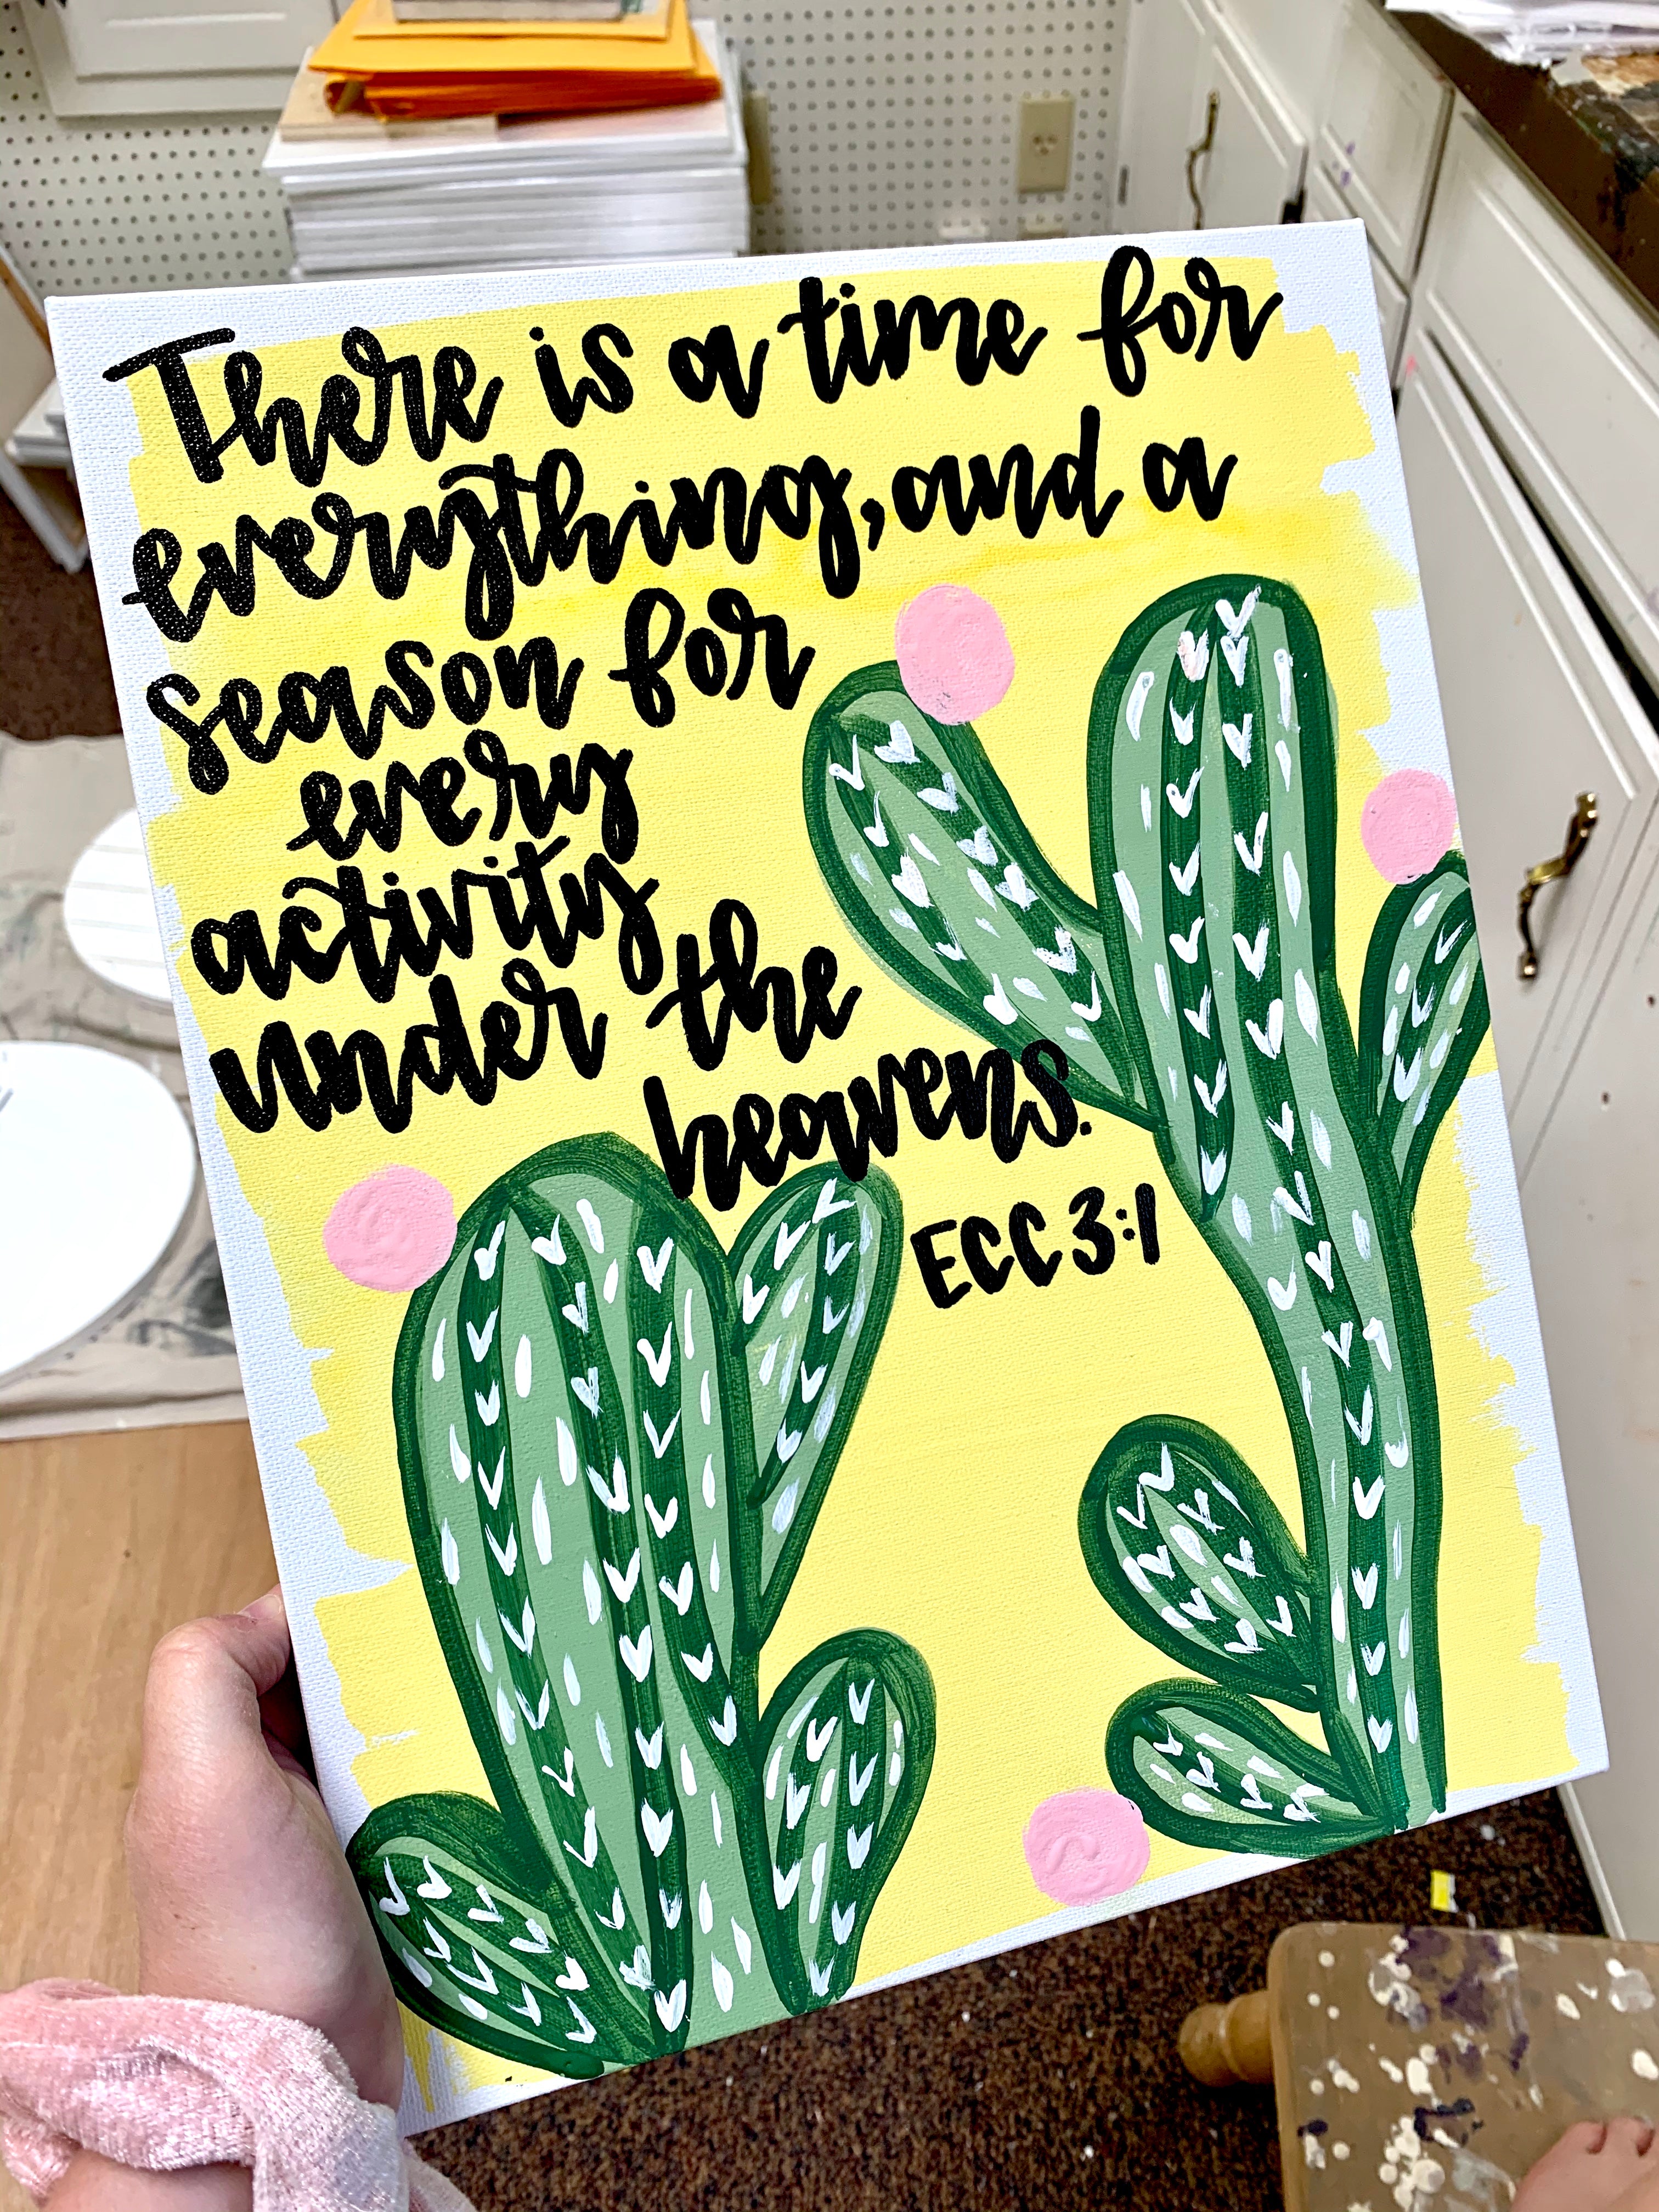 There is a time for
everything, and a
season for
every
activity
under the
heavens.
ECC 3:1